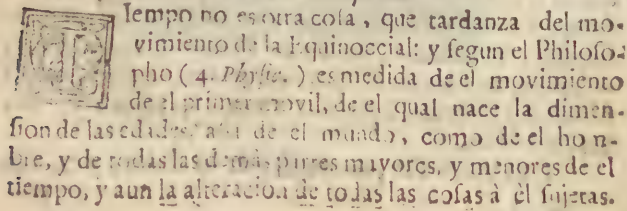 TIempo no es otra cosa, que tardanza del mo-
vimiento de la Equinoccial: y segun el Philoso-
pho (4. Physic.) es medida de el movimiento
de el primer movil, de el qual nace la dimen-
sion de las edades, assi de el mundo, como de el hom-
bre, y de todas las demás partes mayores, y menores de el
tiempo, y aun la alteracion de todas las cosas à èl sujetas.